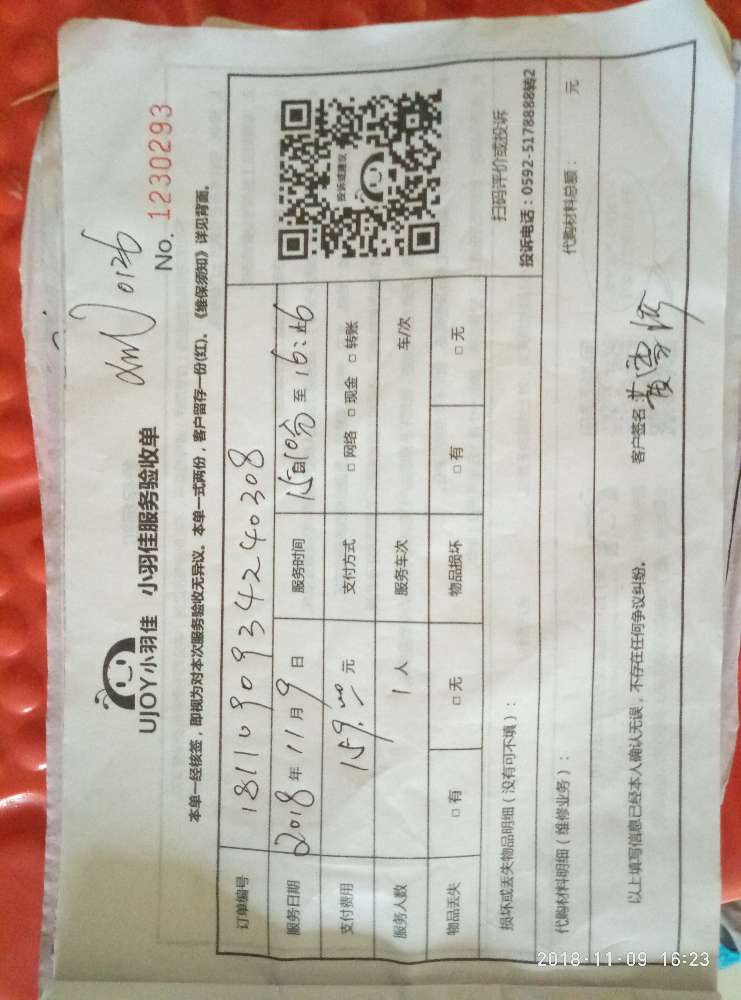 0126
UJOY小羽佳 小羽佳服务验收单
No. 1230293
本单一经核签，即视为对本次服务验收无异议。本单一式两份，客户留存一份(红)。《维保须知》详见背面。
订单编号 181109093424240308
服务日期 2018 年 11 月 9 日 服务时间 至 16:16
支付费用 159.00 元 支付方式 □ 网络 □ 现金 □ 转账
服务人数 1 人 服务车次 车/次
物品丢失 □ 有 □ 无 物品损坏 □ 有 □ 无
投诉或建议
扫码评价或投诉
投诉电话：0592-5178888转2
损坏或丢失物品明细（没有可不填）：
代购材料明细（维修业务）： 代购材料总额： 元
以上填写信息已经本人确认无误，不存在任何争议纠纷。 客户签名：
2018·11·09 16:23